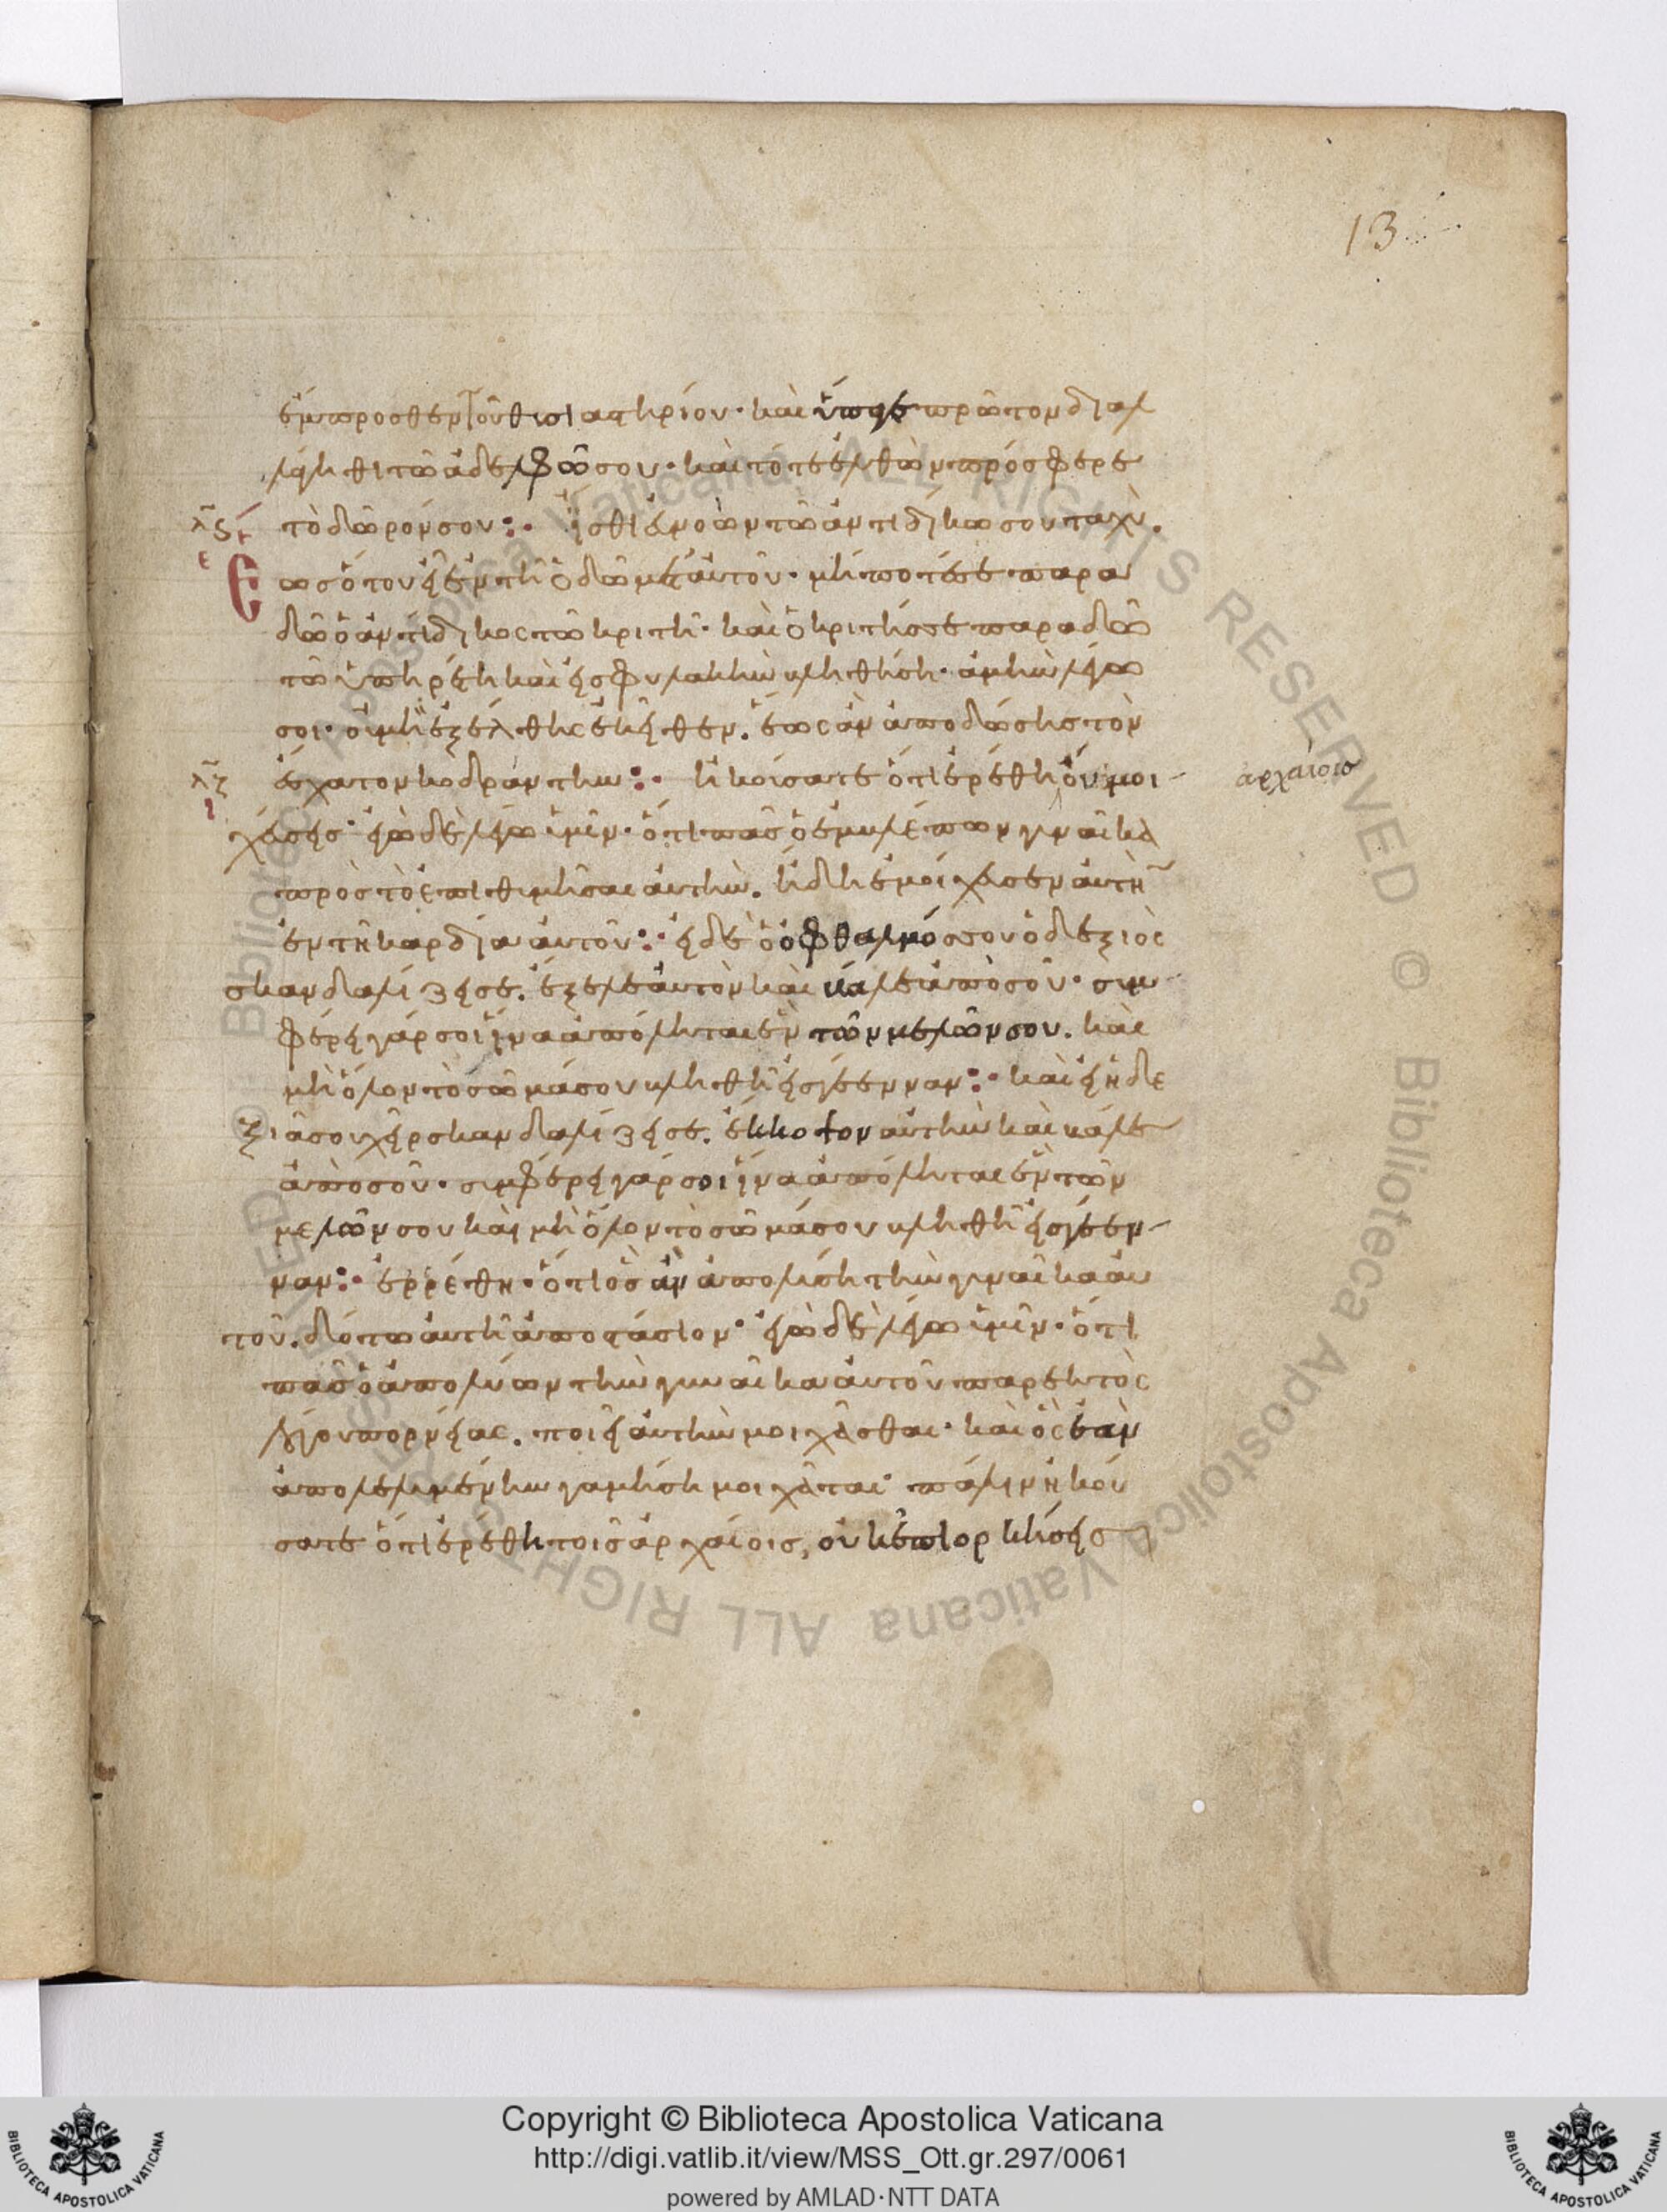 13
ἔμπροσθεν τοῦ θυσιαστηρίου· καὶ ὕπαγε πρῶτον διαλ
λάγηθι τῶ ἀδελφῶ σου· καὶ τότε ἐλθὼν πρόσφερε
λς τὸ δῶρον σου: ἴσθι εὐνοῶν τῶ ἀντιδίκω σου ταχὺ.
ε Ἕως ὅτου εἶ ἐν τῆ ὁδῶ μετ' αὐτοῦ· μήποτέ σε παρα
δῶ ὁ ἀντίδικος τῶ κριτῆ· καὶ ὁ κριτής σε παραδῶ
τῶ ὑπηρέτη καὶ εἰς φυλακὴν βληθήση· ἀμὴν λέγω
σοι· οὐ μὴ ἐξέλθης ἐκεῖθεν. ἕως ἂν ἀποδώσης τὸν
λζ ἔσχατον κοδράντην: ἠκούσατε ὅτι ἐρέθη οὐ μοι
ἀρχαίοις
ι χεύσεις· ἐγὼ δὲ λέγω ὑμῖν· ὅτι πᾶς ὁ ἐμβλέπων γυναῖκα
πρὸς τὸ ἐπιθυμῆσαι αὐτὴν. ἤδη ἐμοίχευσεν αὐτὴν
ἐν τῆ καρδία αὐτοῦ: εἰ δὲ ὁ ὀφθαλμός σου ὁ δεξιὸς
σκανδαλίζει σε. ἔξελε αὐτὸν καὶ βάλε ἀπὸ σοῦ· συμ
φέρει γάρ σοι ἵνα ἀπόληται ἓν τῶν μελῶν σου. καὶ
μὴ ὅλον τὸ σῶμά σου βληθῆ εἰς γέενναν: καὶ εἰ ἡ δε
ξιά σου χεὶρ σκανδαλίζει σε. ἔκκοψον αὐτὴν καὶ βάλε
ἀπὸ σοῦ· συμφέρει γάρ σοι ἵνα ἀπόληται ἓν τῶν
μελῶν σου καὶ μὴ ὅλον τὸ σῶμά σου βληθῆ εἰς γέεν
ναν: ἐρρέθη· ὅτι ὃς ἂν ἀπολύση τὴν γυναῖκα αὐ
τοῦ. δότω αὐτῆ ἀποστάσιον· ἐγὼ δὲ λέγω ὑμῖν· ὅτι
πᾶς ὁ ἀπολύων τὴν γυναῖκα αὐτοῦ παρεκτὸς
λόγου πορνείας. ποιεῖ αὐτὴν μοιχᾶσθαι· καὶ ὃς ἐὰν
ἀπολελυμένην γαμήση μοιχᾶται· πάλιν ἠκού
σατε ὅτι ἐρέθη τοῖς ἀρχαίοις, οὐκ ἐπιορκήσεις
Copyright © Biblioteca Apostolica Vaticana
http://digi.vatlib.it/view/MSS_Ott.gr.297/0061
powered by AMLAD·NTT DATA